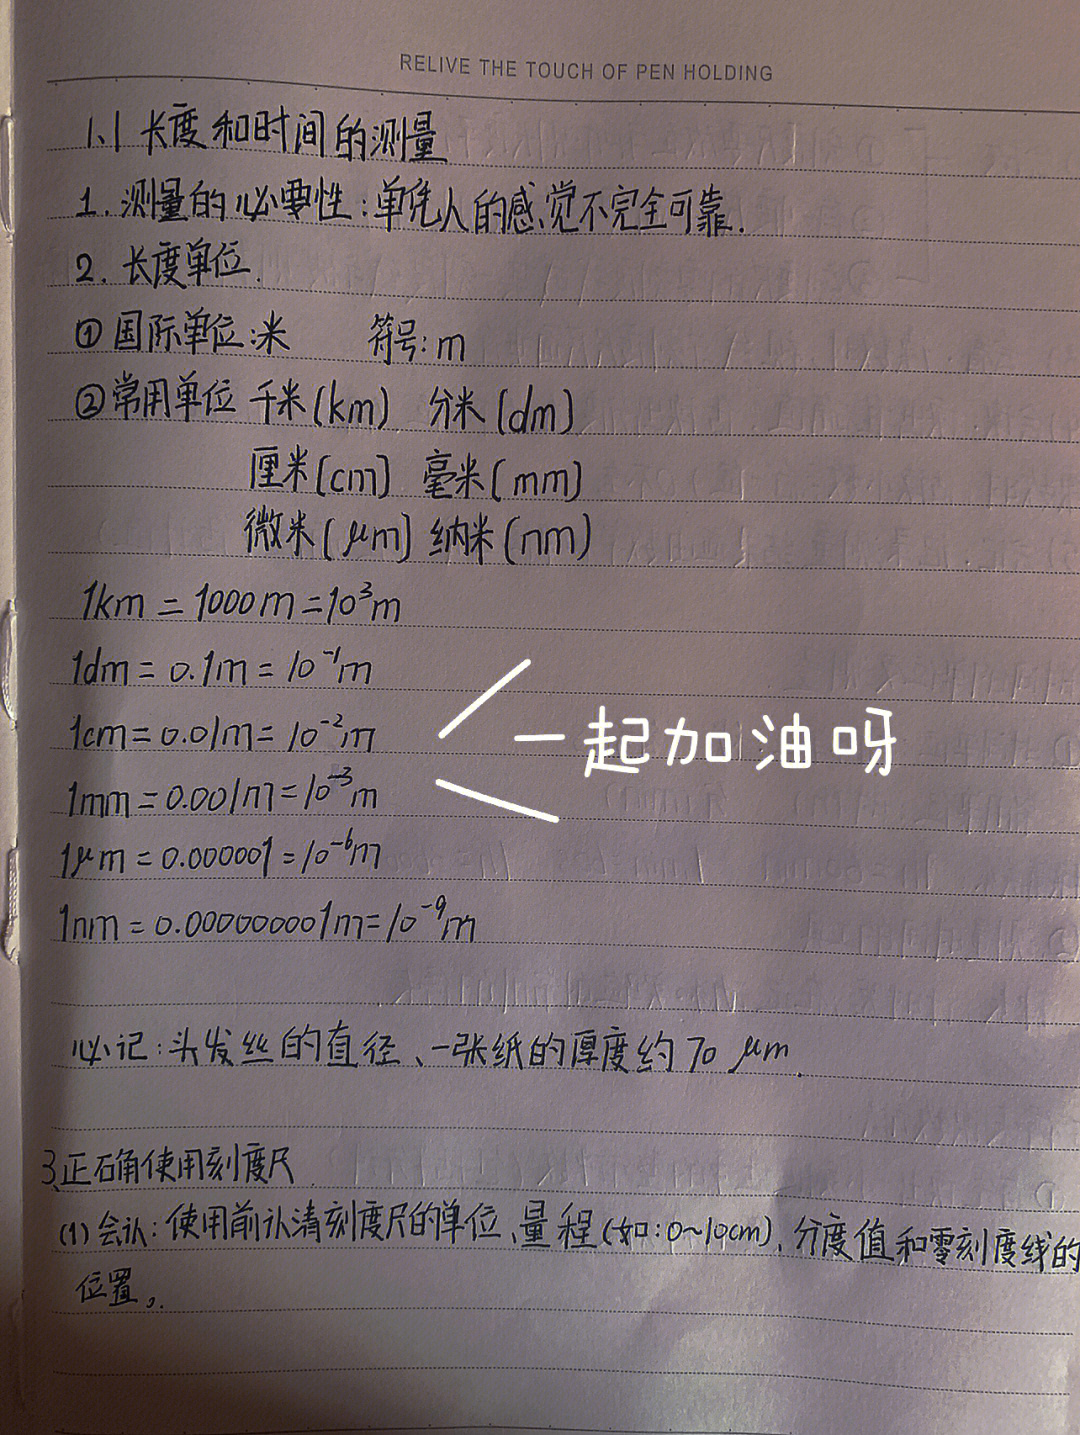 RELIVE THE TOUCH OF PEN HOLDING
1.1 长度和时间的测量
1. 测量的必要性:单凭人的感觉不完全可靠.
2. 长度单位.
①国际单位:米 符号:m
②常用单位 千米(km) 分米(dm)
厘米(cm) 毫米(mm)
微米(μm) 纳米(nm)
1km=1000m=10³m
1dm=0.1m=10⁻¹m
1cm=0.01m=10⁻²m
一起加油呀
1mm=0.001m=10⁻³m
1μm=0.000001=10⁻⁶m
1nm=0.000000001m=10⁻⁹m
必记:头发丝的直径、一张纸的厚度约70 μm.
3.正确使用刻度尺
(1)会认:使用前认清刻度尺的单位、量程(如:0~10cm)、分度值和零刻度线的
位置。